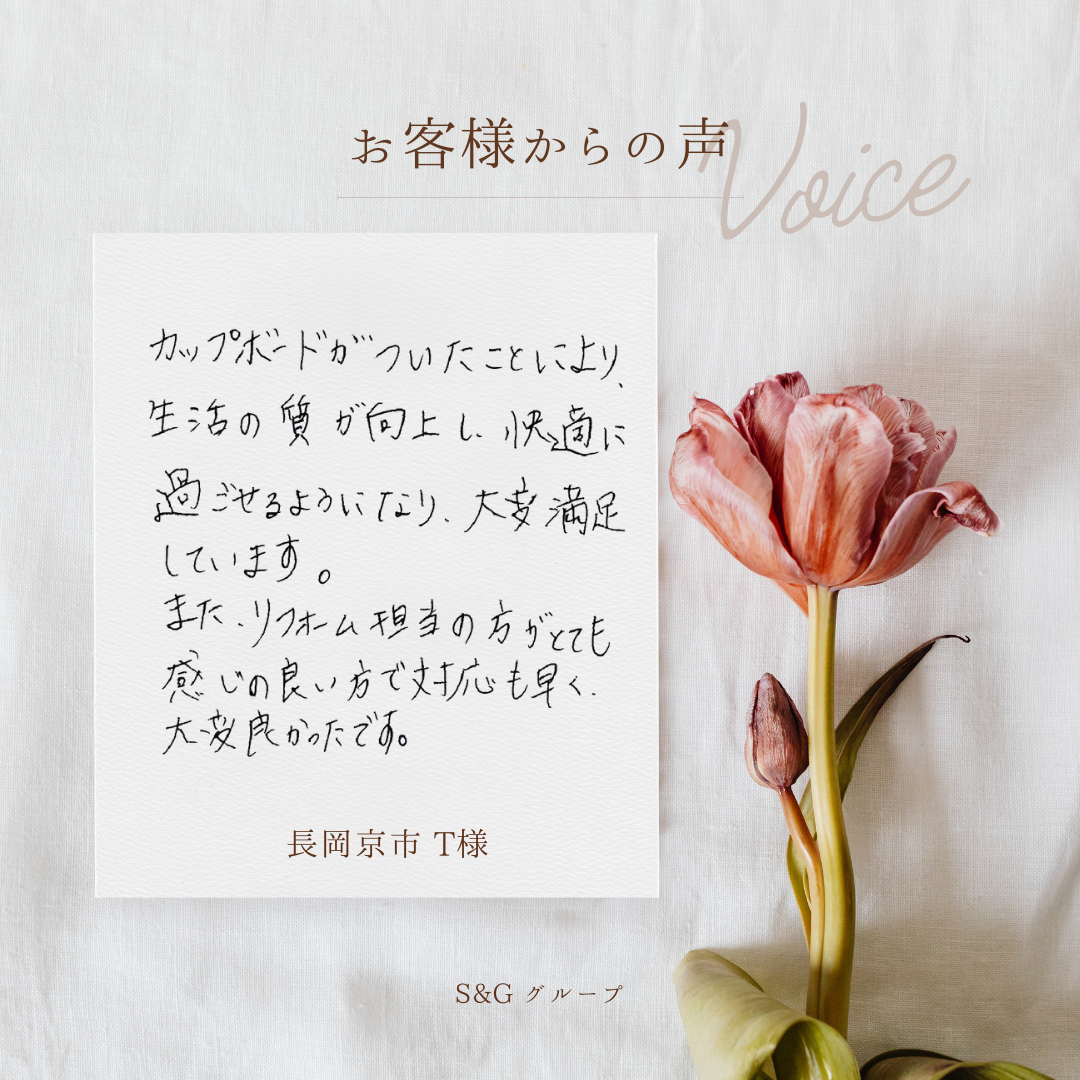 お客様からの声
Voice
カップボードがついたことにより、
生活の質が向上し、快適に
過ごせるようになり、大変満足
しています。
また、リフォーム担当の方がとても
感じの良い方で対応も早く、
大変良かったです。
長岡京市 T様
S&G グループ